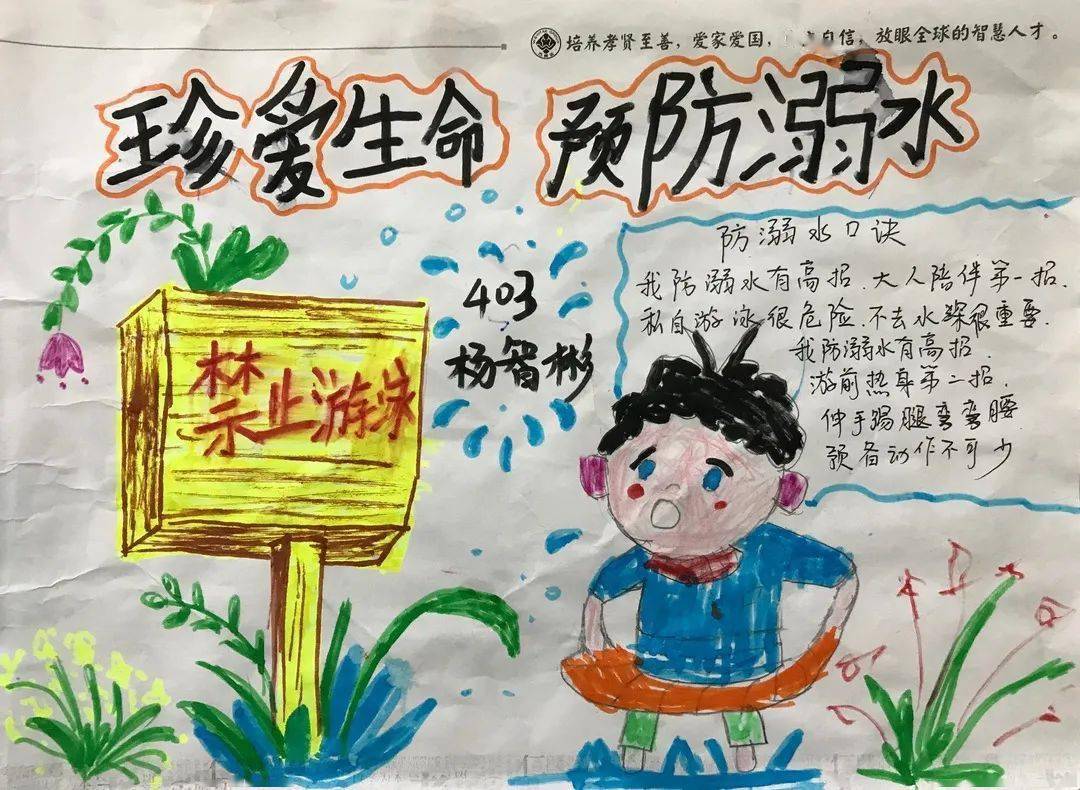 培养孝贤至善，爱家爱国，自信，放眼全球的智慧人才。
珍爱生命 预防溺水
防溺水口诀
我防溺水有高招.大人陪伴第一招.
私自游泳很危险.不去水深很重要.
我防溺水有高招.
游前热身第二招.
伸手踢腿弯弯腰
预备动作不可少
403
杨智彬
禁止游泳